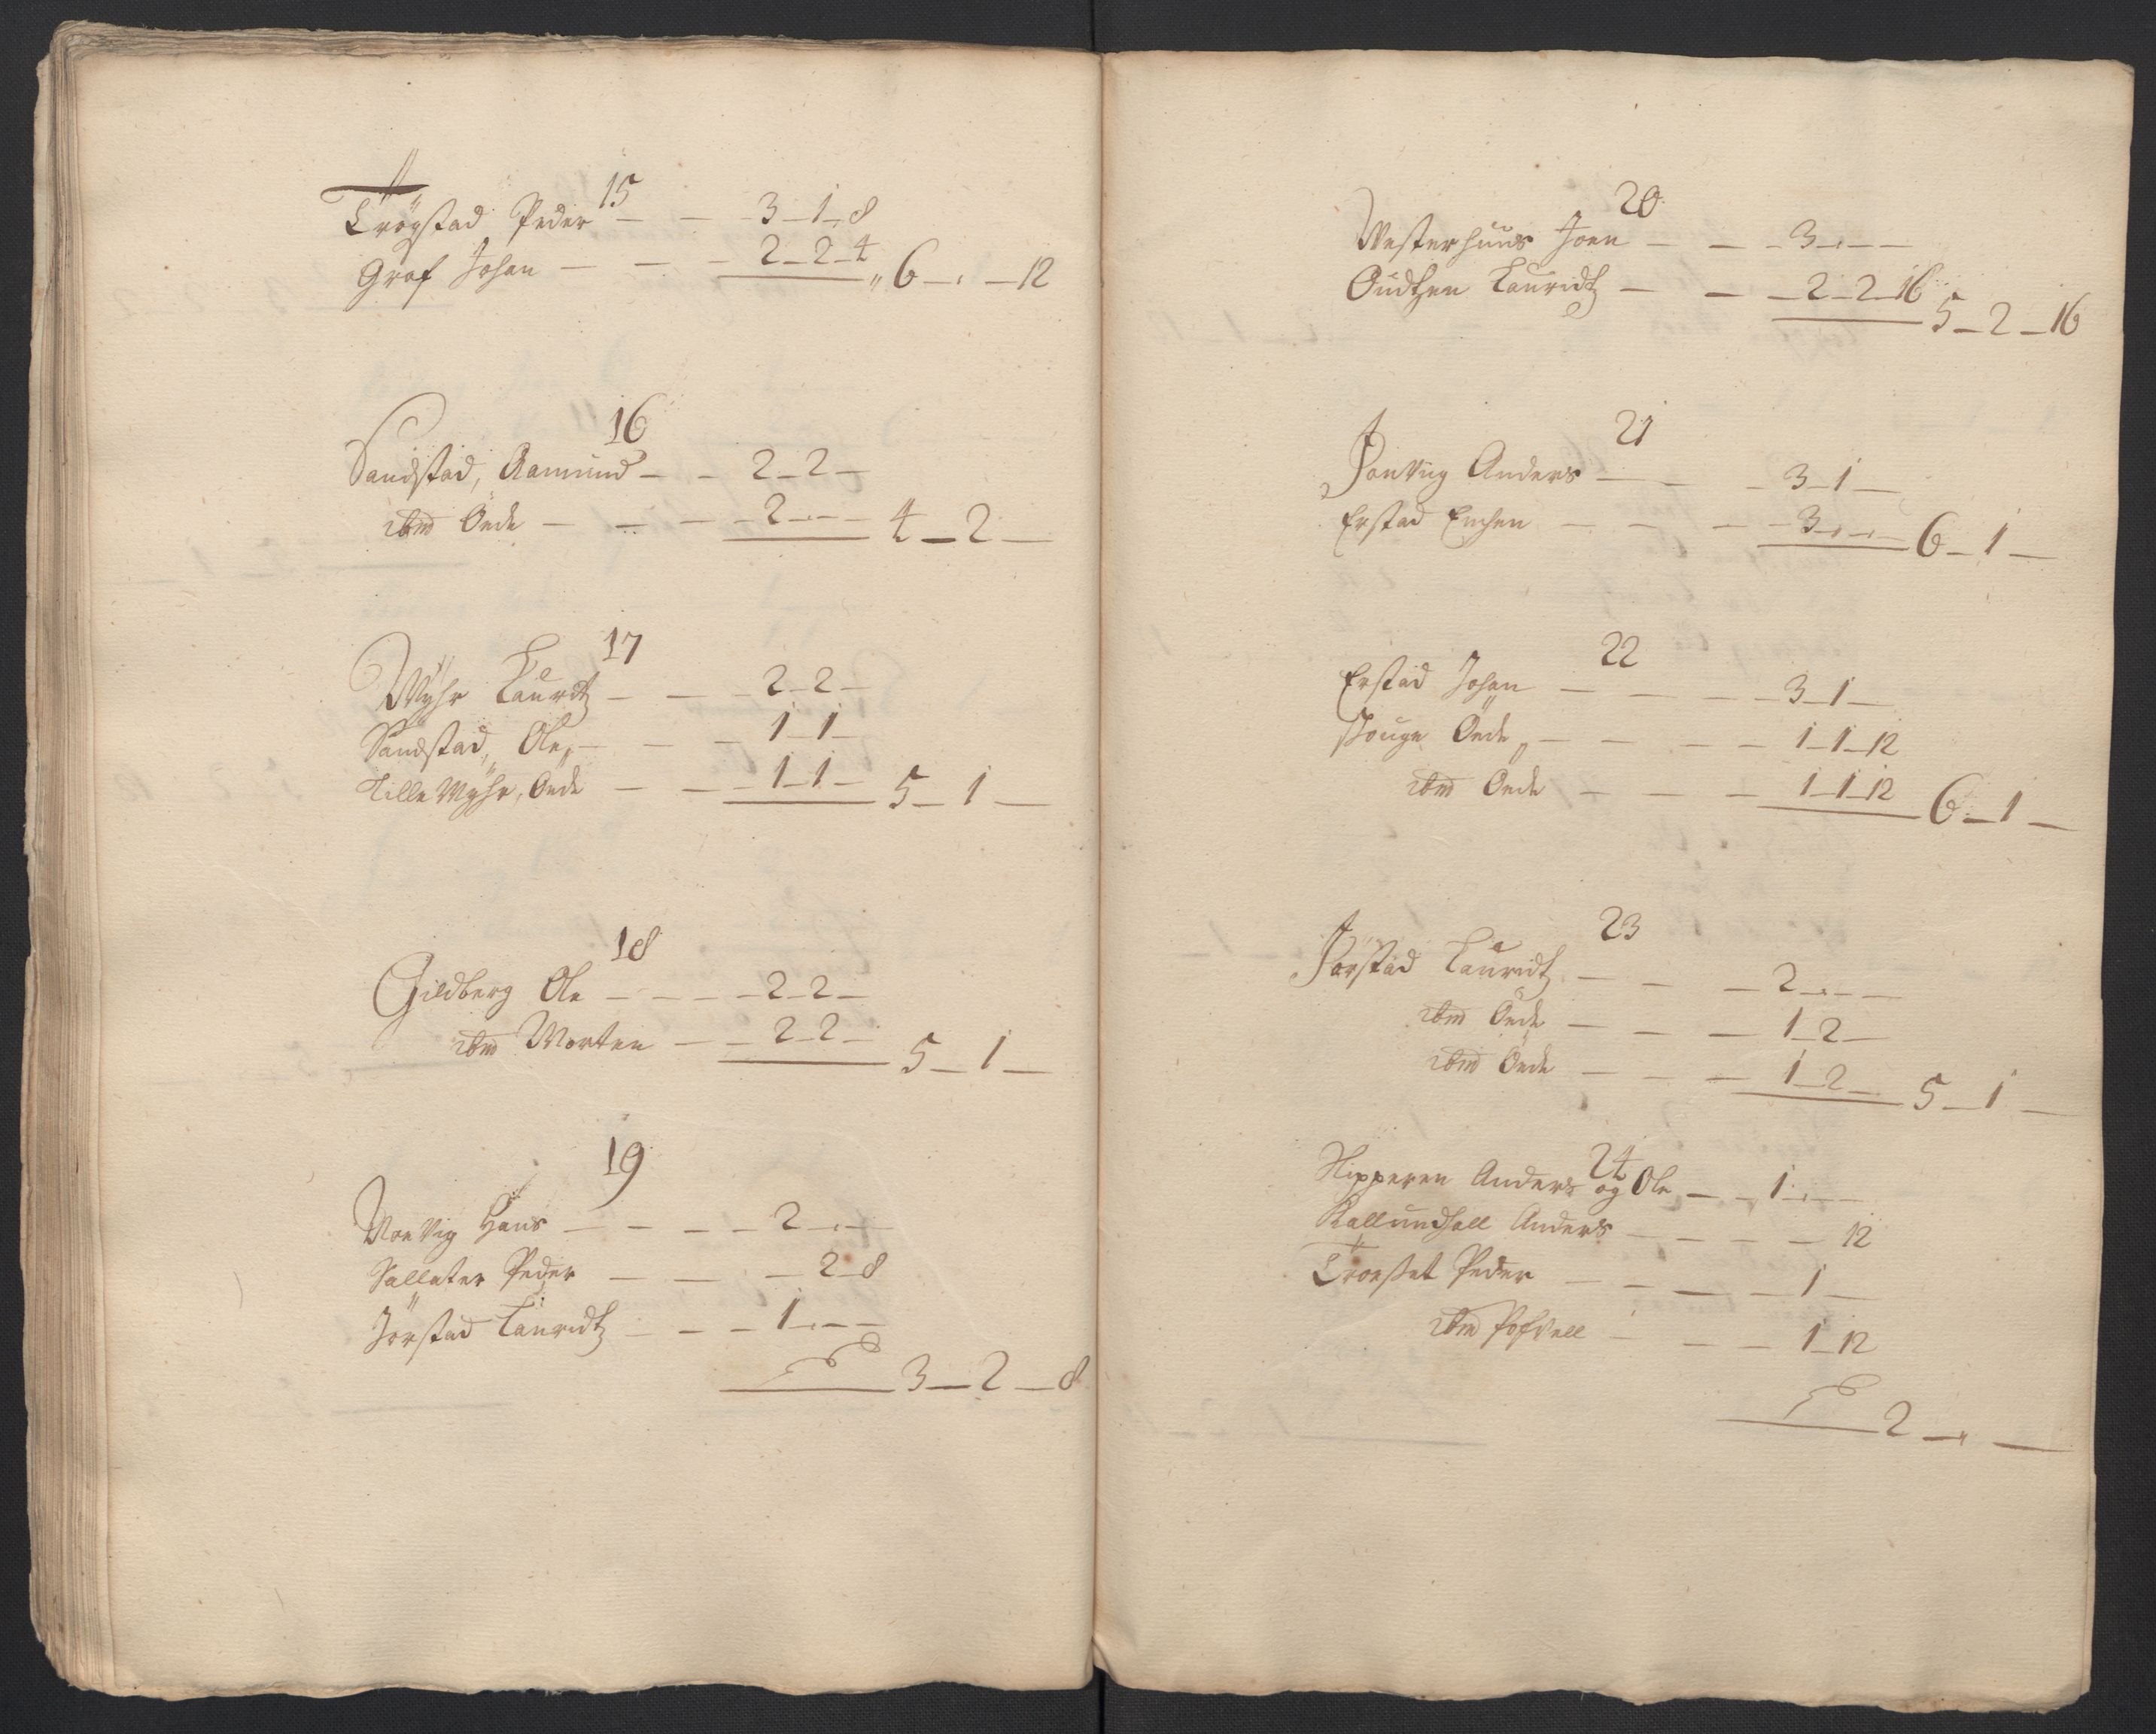 15
Trøgstad Peder — — 3–1–8
Graf Johan — — — 2–2–4 „ 6 – „ – 12
16
Sandstad, Aamund — — 2–2 –
ibm Øede — — — 2 – „ – 4 – 2 –
17
Myhr Lauritz — — 2–2 –
Sandstad, Ole — — — 1–1 –
Lille Myhr, Øede — — 1–1 – 5 – 1 –
18
Gildberg Ole — — — 2–2 –
ibm Morten — — 2–2 – 5 – 1 –
19
Vorvig Hans — — — 2 – „ –
Sallater Peder — — — 2–8
Jørstad Lauridtz — — — 1 – „ –
3 – 2 – 8
20
Westerhuus Joen — — 3 – „ –
Oudhen Lauridtz — — 2–2–16 5 – 2 – 16
21
Anders — — 3–1 –
Erstad — — — 3 – „ – „ – 6 – 1 –
22
Erstad Johan — — — 3–1 –
Øede — — — — 1–1–12
ibm Øede — — — 1–1–12 6 – 1 –
23
Jørstad Lauridtz — — — 2 – „ –
ibm Øede — — — 1–2 –
ibm Øede — — — 1–2 – 5 – 1 –
24
Klipperen Anders og Ole — — 1 – „ –
Kallundhall Anders — — — — 12
Troesset Peder — — — — 1 –
ibm Povell — — — 1–12
2 – „ –